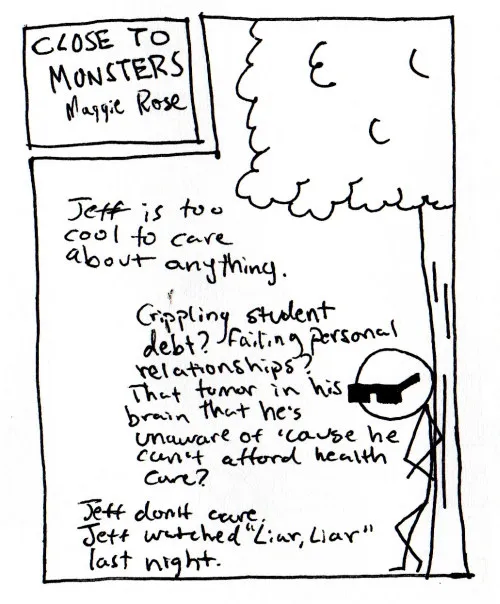 CLOSE TO
MONSTERS
Maggie Rose
Jeff is too
cool to care
about anything.
Crippling student
debt? Failing personal
relationships?
That tumor in his
brain that he's
unaware of 'cause he
can't afford health
care?
Jeff don't care.
Jeff watched "Liar, Liar"
last night.